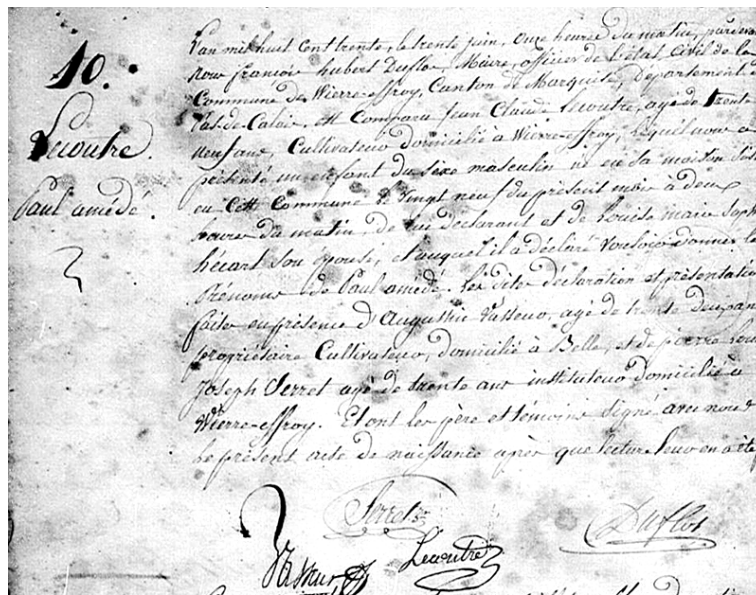 10.
Lecoutre.
Paul amédé.
L'an mil huit cent trente, le trente juin, onze heures du matin, pardevant
nous françois hubert Duflos, Maire, officier de l'état Civil de la
Commune de Wierre-effroy, Canton de Marquise, departement du
Pas-de-Calais, est Comparu Jean Claude Lecoutre, agé de trente
neuf ans, Cultivateur domicilié à Wierre-effroy, lequel nous a
présenté un enfant du sexe masculin né en sa maison
en cette Commune le Vingt neuf du présent mois à deux
heures du matin, de lui déclarant et de Louise marie Soph
hécart son épouse, et auquel il a déclaré vouloir donner les
Prénoms de Paul amédé. Les dites déclaration et présentation
faites en présence d'Augustin Vasseur, agé de trente deux ans
propriétaire Cultivateur, domicilié à Belle, et de pierre
Joseph Serret agé de trente ans instituteur domicilié à
Wierre-effroy. Et ont les père et témoins signé avec nous
le présent acte de naissance après que lecture leur en a été
Serret
Duflos
Lecoutre
Vasseur